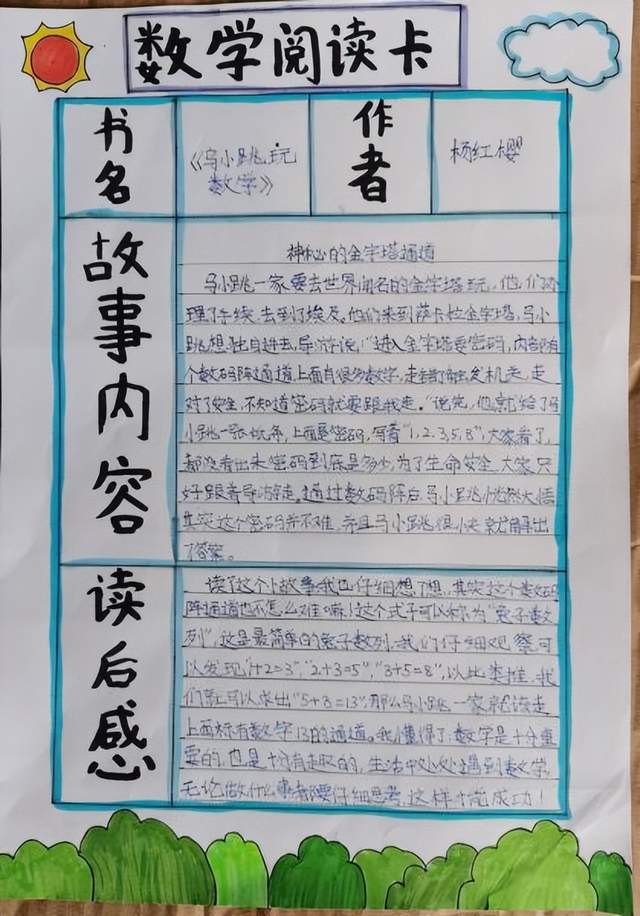 数学阅读卡
书名
《马小跳玩
数学》
作者
杨红樱
故事内容
神秘的金字塔通道
马小跳一家要去世界闻名的金字塔玩，他们办
理了手续，去到了埃及。他们来到萨卡拉金字塔，马小
跳想独自进去，导游说，“进入金字塔要密码，内部有
个数码阵通道，上面有很多数字，走错了触发机关，走
对了安全，不知道密码就要跟我走。”说完，他就给了马
小跳一张纸条，上面是密码，写着“1,2,3,5,8”，大家看了，
都没看出来密码到底是多少，为了生命安全，大家只
好跟着导游走，通过数码阵后，马小跳恍然大悟
其实这个密码并不难，并且马小跳很快就解出
了答案。
读后感
读了这个小故事我也仔细想了想，其实这个数码
阵通道也不怎么难嘛！这个式子可以称为“兔子数
列”，这是最简单的兔子数列，我们仔细观察可
以发现“1+2=3”，“2+3=5”，“3+5=8”，以此类推，我
们就可以求出“5+8=13”，那么马小跳一家就该走
上面标有数字13的通道。我懂得了数学是十分重
要的，也是十分有趣的，生活中处处遇到数学，
无论做什么事都要仔细思考，这样才能成功！